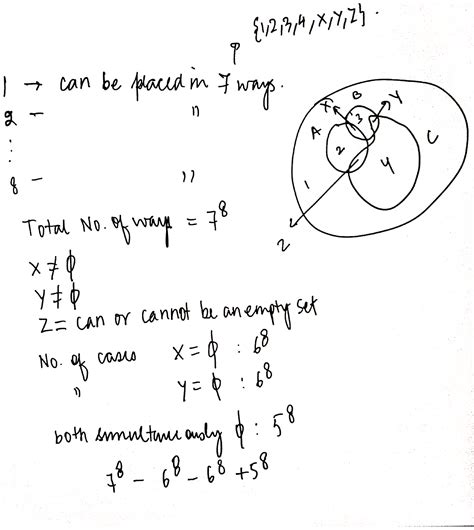 {1,2,3,4,X,Y,Z}
1 → can be placed in 7 ways.
2 — "
⋮
8 — "
Total No. of ways = 7^8
X ≠ ϕ
Y ≠ ϕ
Z = can or cannot be an empty set
No. of cases X = ϕ : 6^8
" Y = ϕ : 6^8
both simultaneously ϕ : 5^8
7^8 - 6^8 - 6^8 + 5^8
X B Y
A 3 C
2 4
1
Z